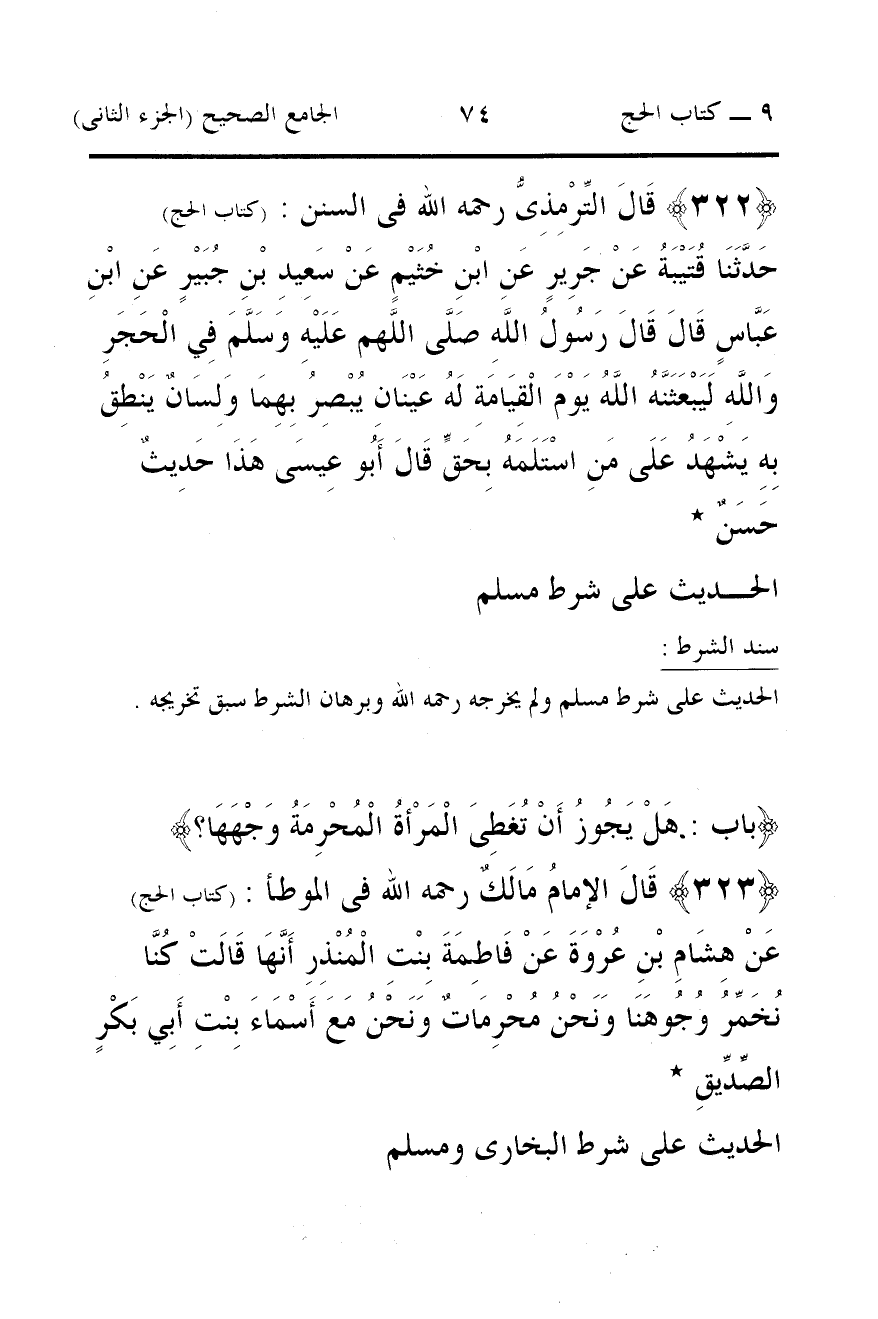 ٩ ــ كتاب الحج ٧٤ الجامع الصحيح (الجزء الثانى)
﴿٣٢٢﴾ قَالَ التِّرْمذِىُّ رحمه الله فى السنن : (كتاب الحج)
حَدَّثَنَا قُتَيْبَةُ عَنْ جَرِيرٍ عَنِ ابْنِ خُثَيْمٍ عَنْ سَعِيدِ بْنِ جُبَيْرٍ عَنِ ابْنِ
عَبَّاسٍ قَالَ قَالَ رَسُولُ اللَّهِ صَلَّى اللَّهم عَلَيْهِ وَسَلَّمَ فِي الْحَجَرِ
وَاللَّهِ لَيَبْعَثَنَّهُ اللَّهُ يَوْمَ الْقِيَامَةِ لَهُ عَيْنَانِ يُبْصِرُ بِهِمَا وَلِسَانٌ يَنْطِقُ
بِهِ يَشْهَدُ عَلَى مَنِ اسْتَلَمَهُ بِحَقٍّ قَالَ أَبُو عِيسَى هَذَا حَدِيثٌ
حَسَنٌ *
الحـــديث على شرط مسلم
سند الشرط :
الحديث على شرط مسلم ولم يخرجه رحمه الله وبرهان الشرط سبق تخريجه .
﴿باب : هَلْ يَجُوزُ أَنْ تُغَطِىَ الْمَرْأَةُ الْمُحْرِمَةُ وَجْهَهَا؟﴾
﴿٣٢٣﴾ قَالَ الإمامُ مَالَكٌ رحمه الله فى الموطأ : (كتاب الحج)
عَنْ هِشَامِ بْنِ عُرْوَةَ عَنْ فَاطِمَةَ بِنْتِ الْمُنْذِرِ أَنَّهَا قَالَتْ كُنَّا
نُخَمِّرُ وُجُوهَنَا وَنَحْنُ مُحْرِمَاتٌ وَنَحْنُ مَعَ أَسْمَاءَ بِنْتِ أَبِي بَكْرٍ
الصِّدِّيقِ *
الحديث على شرط البخارى ومسلم